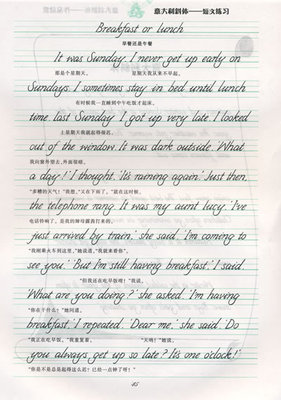 意大利斜体——短文练习
Breakfast or lunch
早餐还是午餐
It was Sunday. I never get up early on
那是个星期天,      是期天我从来不早起,
Sundays. I sometimes stay in bed until lunch
有时候我一直睡到中午吃饭才起床。
time. last Sunday I got up very late. I looked
上星期天我就起得很迟。
out of the window. It was dark outside. 'What
我向窗外望去,外面很暗。
a day!' I thought. 'It's raineng again.' Just then,
“多糟的天气!”我想,“又在下雨了。”就在这时候,
the telephone rang. It was my aunt lucy. 'I've
电话铃响了。是我的姑母露西打来的。
just arrived by train,' she said. 'I'm coming to
“我刚乘火车到这里,”她说道,“我就来看你”。
see you.' 'But I'm still having breakfast,' I said.
“但我还在吃早饭呢!”我说。
'What are you doing?' she asked. 'I'm having
“你在干什么?”她问道。
breakfast,' I repeated. 'Dear me,' she said. 'Do
“我正在吃早饭,”我重复着。      “天哪!”她说,
you always get up so late? It's one o'clock!'
“你是不是总是起得这么迟?已经一点钟了呀!”
45